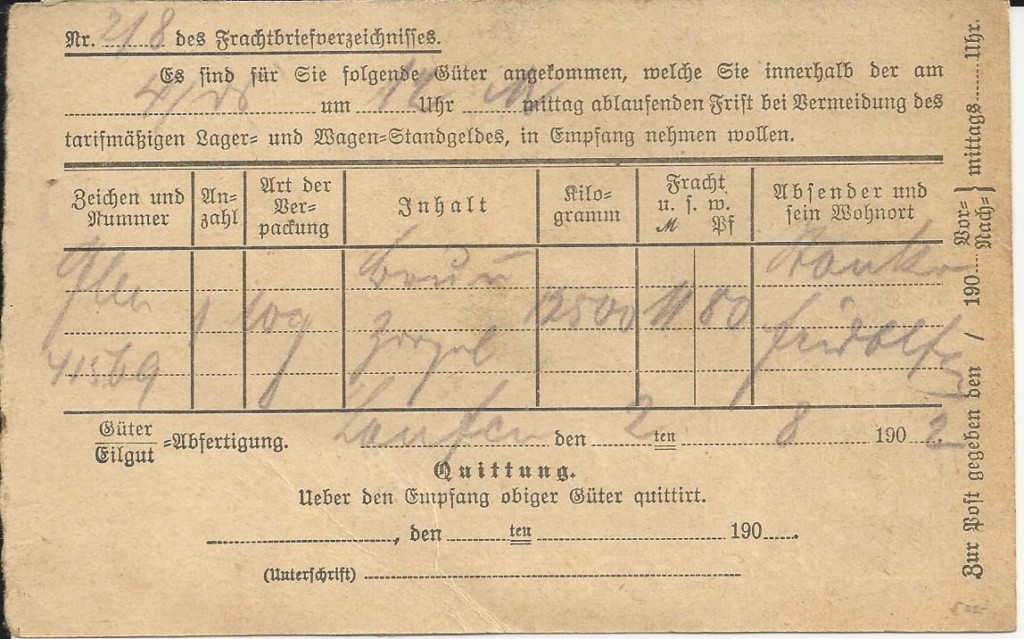 Nr. 218 des Frachtbriefverzeichnisses.
Es sind für Sie folgende Güter angekommen, welche Sie innerhalb der am
um 12 Uhr mittag ablaufenden Frist bei Vermeidung des
tarifmäßigen Lager= und Wagen=Standgeldes, in Empfang nehmen wollen.
Zeichen und Nummer
An=zahl
Art der Ver=packung
Inhalt
Kilo=gramm
Fracht u. s. w.
M Pf
Absender und sein Wohnort
1 12500 11 80
41569
Güter
Eilgut =Abfertigung. Laufen den 2ten 8 1902
Quittung.
Ueber den Empfang obiger Güter quittirt.
, den ten 190 .
(Unterschrift)
Zur Post gegeben den / 190 Vor= Nach= } mittags Uhr.